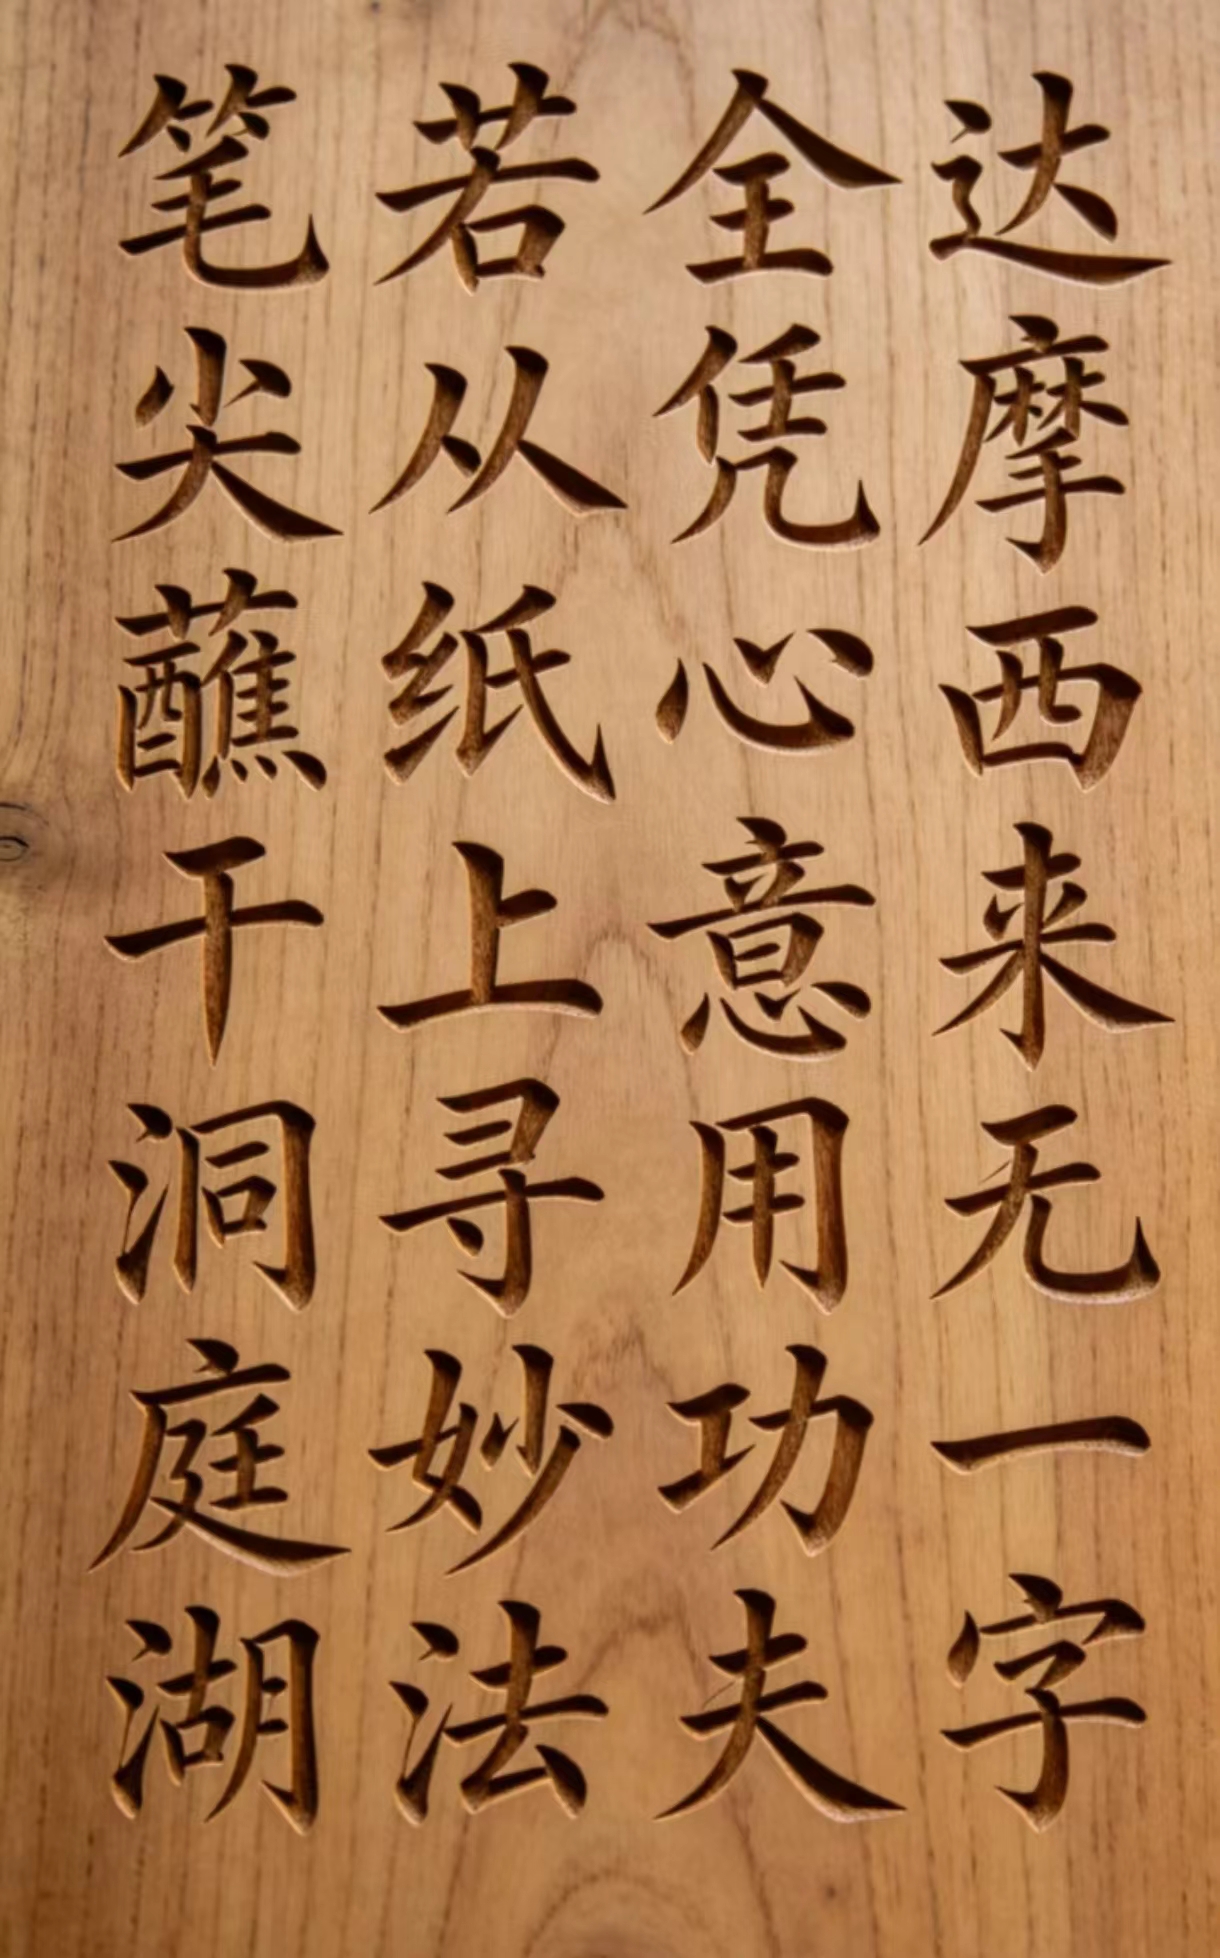 达摩西来无一字
全凭心意用功夫
若从纸上寻妙法
笔尖蘸干洞庭湖